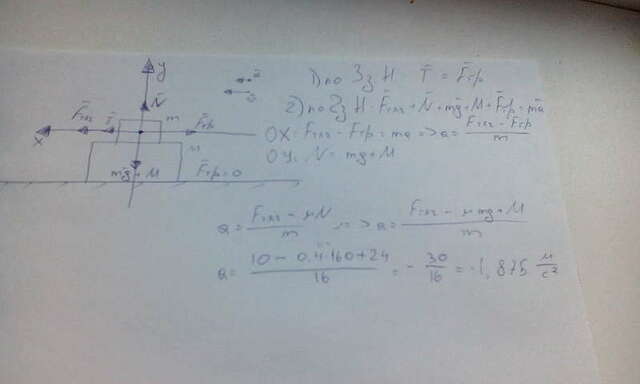 y
N̄
F̄тяг
T̄
m
F̄тр
x
M
m̄g+M
F̄тр=0
1) по 3з Н T̄ = F̄тр
2) по 2з Н F̄тяг + N̄ + m̄g + M + F̄тр = mā
OX: Fтяг − Fтр = ma => a = (Fтяг − Fтр)/m
OY: N = mg + M
a = (Fтяг − μN)/m => a = (Fтяг − μ mg + M)/m
a = (10 − 0,4·160+24)/16 = −30/16 = −1,875 м/с²